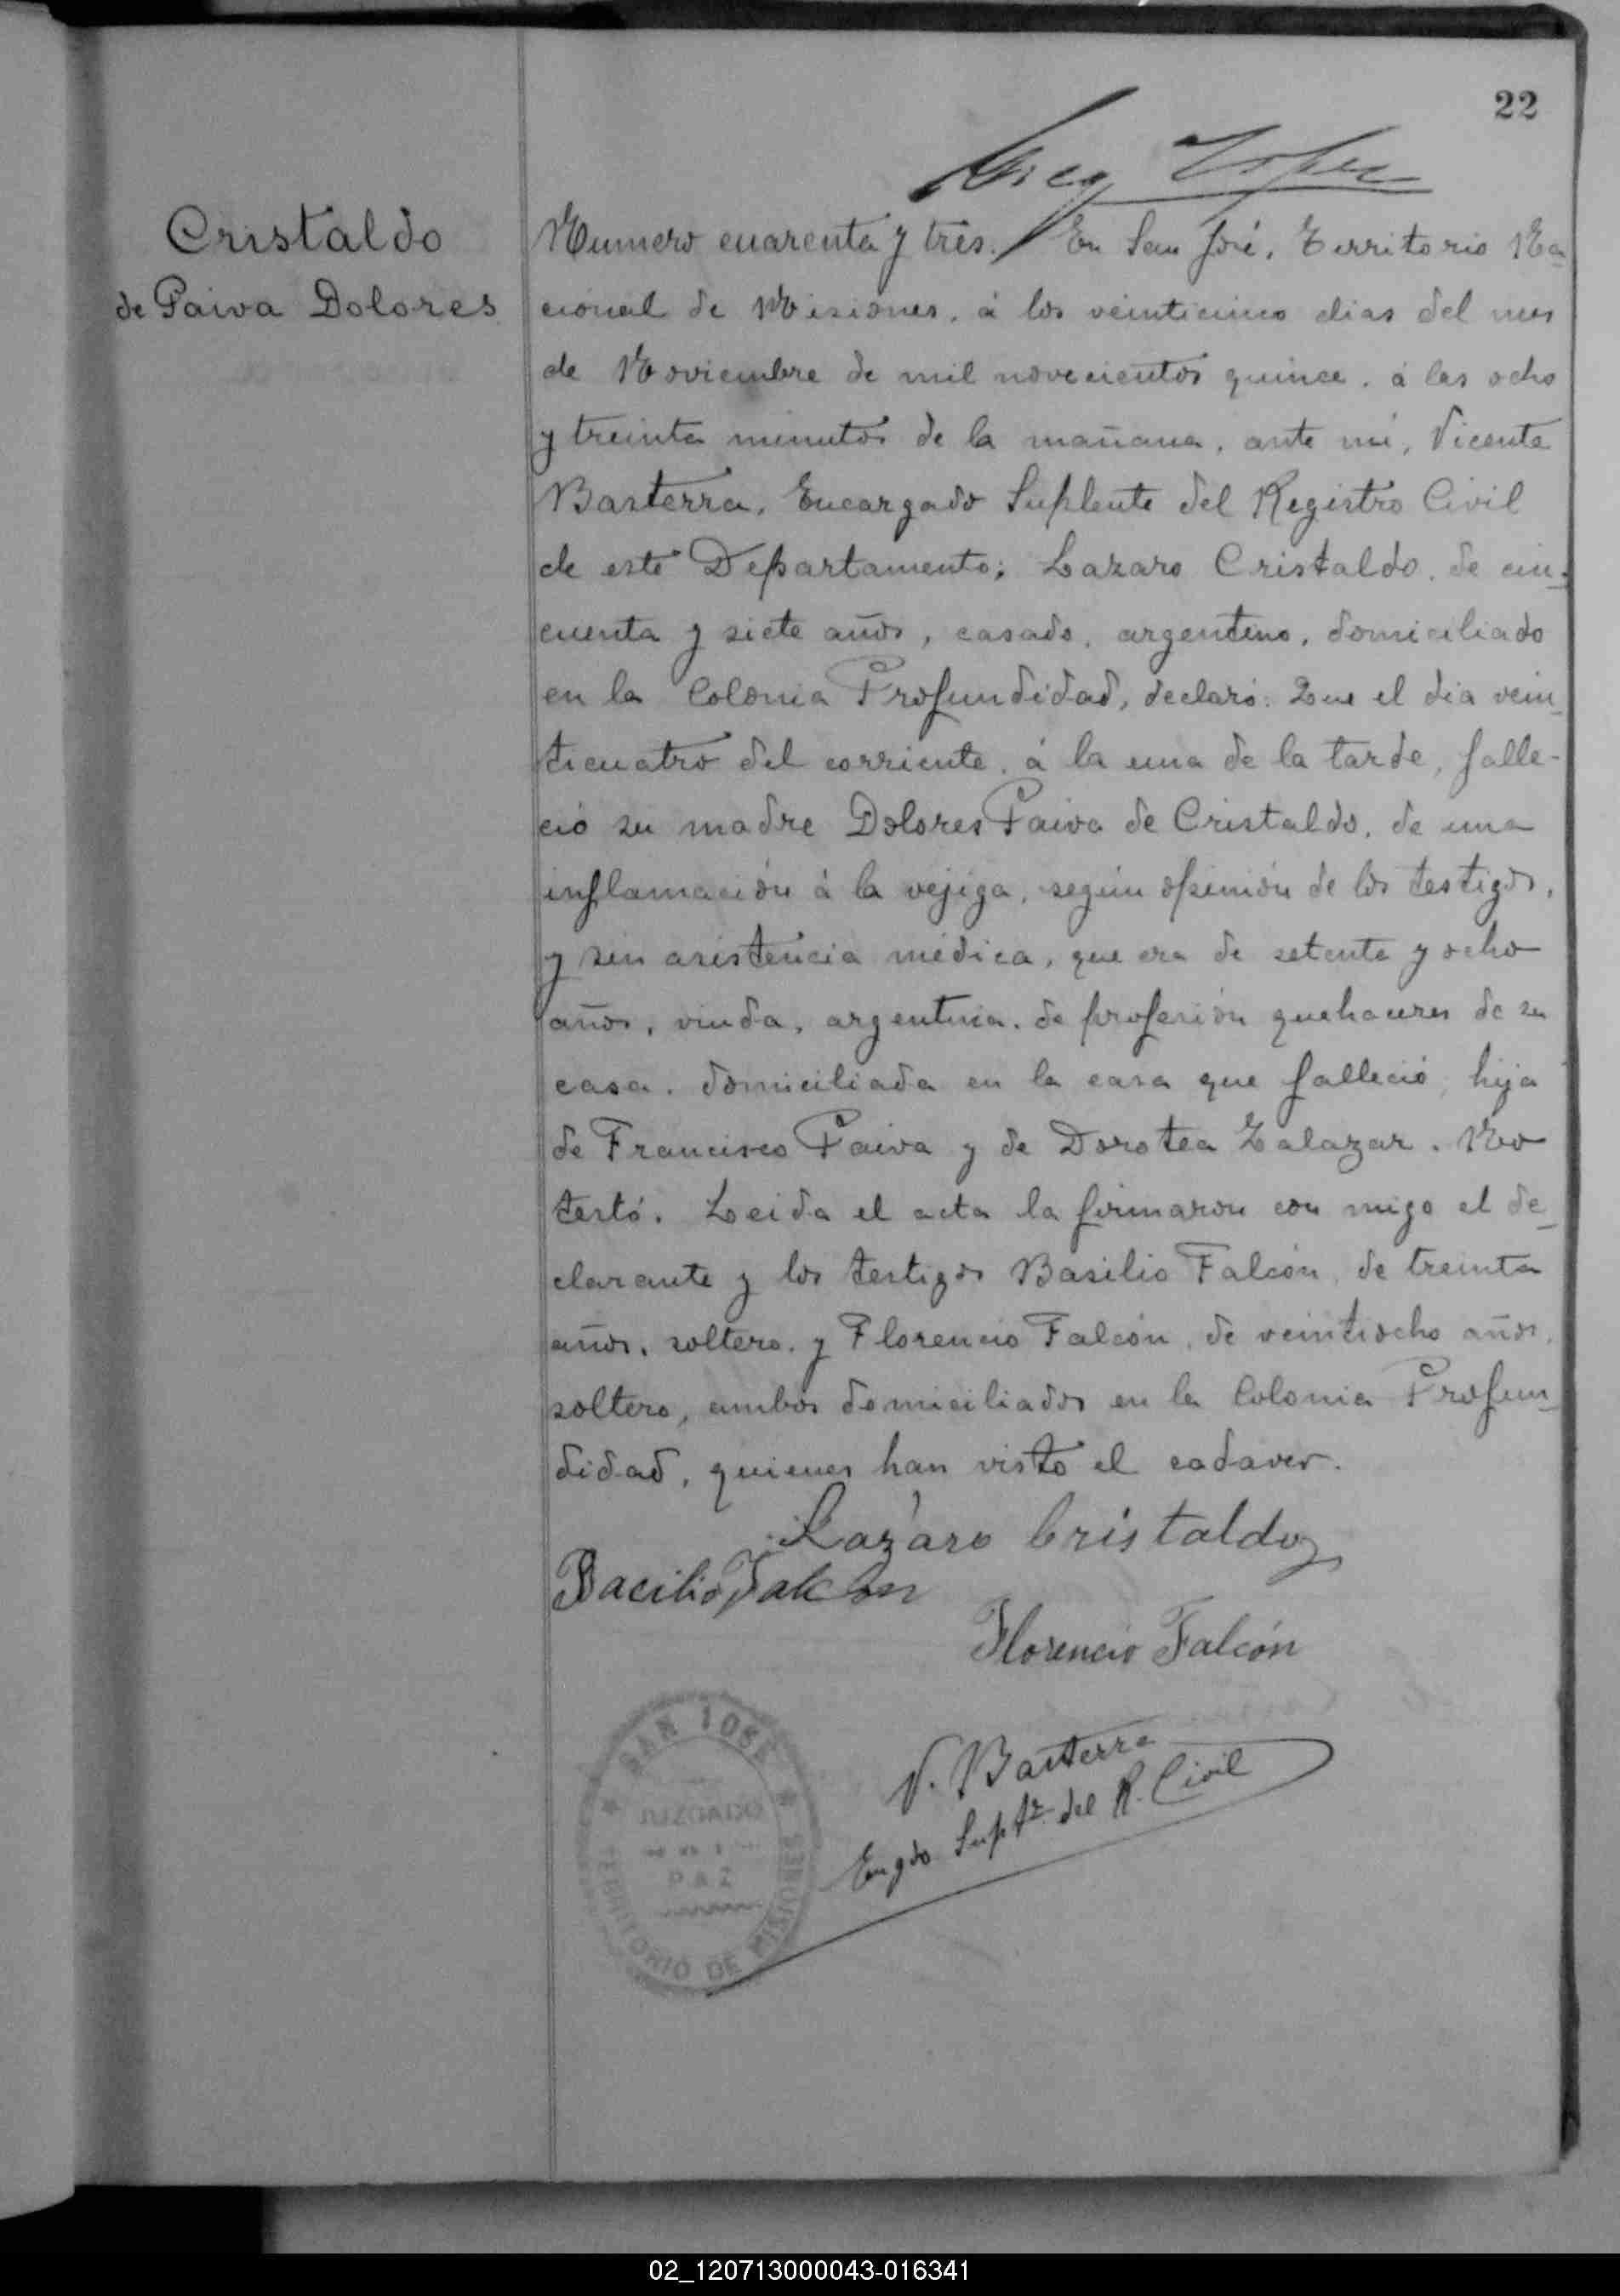 22
Cristaldo
de Paiva Dolores
Numero cuarenta y tres. En San José, Territorio Na-
cional de Misiones, á los veinticinco dias del mes
de Noviembre de mil novecientos quince, á las ocho
y treinta minutos de la mañana, ante mi, Vicente
Basterra, Encargado Suplente del Registro Civil
de este Departamento; Lazaro Cristaldo, de cin-
cuenta y siete años, casado, argentino, domiciliado
en la Colonia Profundidad, declaró: Que el dia vein-
ticuatro del corriente, á la una de la tarde, falle-
ció su madre Dolores Paiva de Cristaldo, de una
inflamación á la vejiga, según opinión de los testigos,
y sin asistencia médica, que era de setenta y ocho
años, viuda, argentina, de profesión quehaceres de su
casa, domiciliada en la casa que falleció, hija
de Francisco Paiva y de Dorotea Zalazar. No
testó. Leida el acta la firmaron con migo el de-
clarante y los testigos Basilio Falcón, de treinta
años, soltero, y Florencio Falcón, de veintiocho años,
soltero, ambos domiciliados en la Colonia Profun-
didad, quienes han visto el cadaver.
Lazáro Cristaldo
Bacilio Falcon
Florencio Falcón
V. Basterra
Engdo Suptte del R. Civil
SAN JOSE
JUZGADO
PAZ
TERRITORIO DE MISIONES
02_120713000043-016341